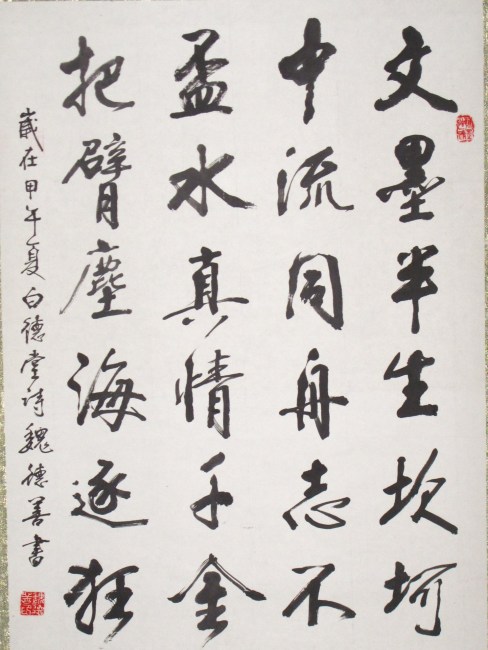 文墨半生坎坷
中流同舟志不
盃水真情千金
把臂塵海逐狂
歲在甲午夏白德堂詩魏德善書